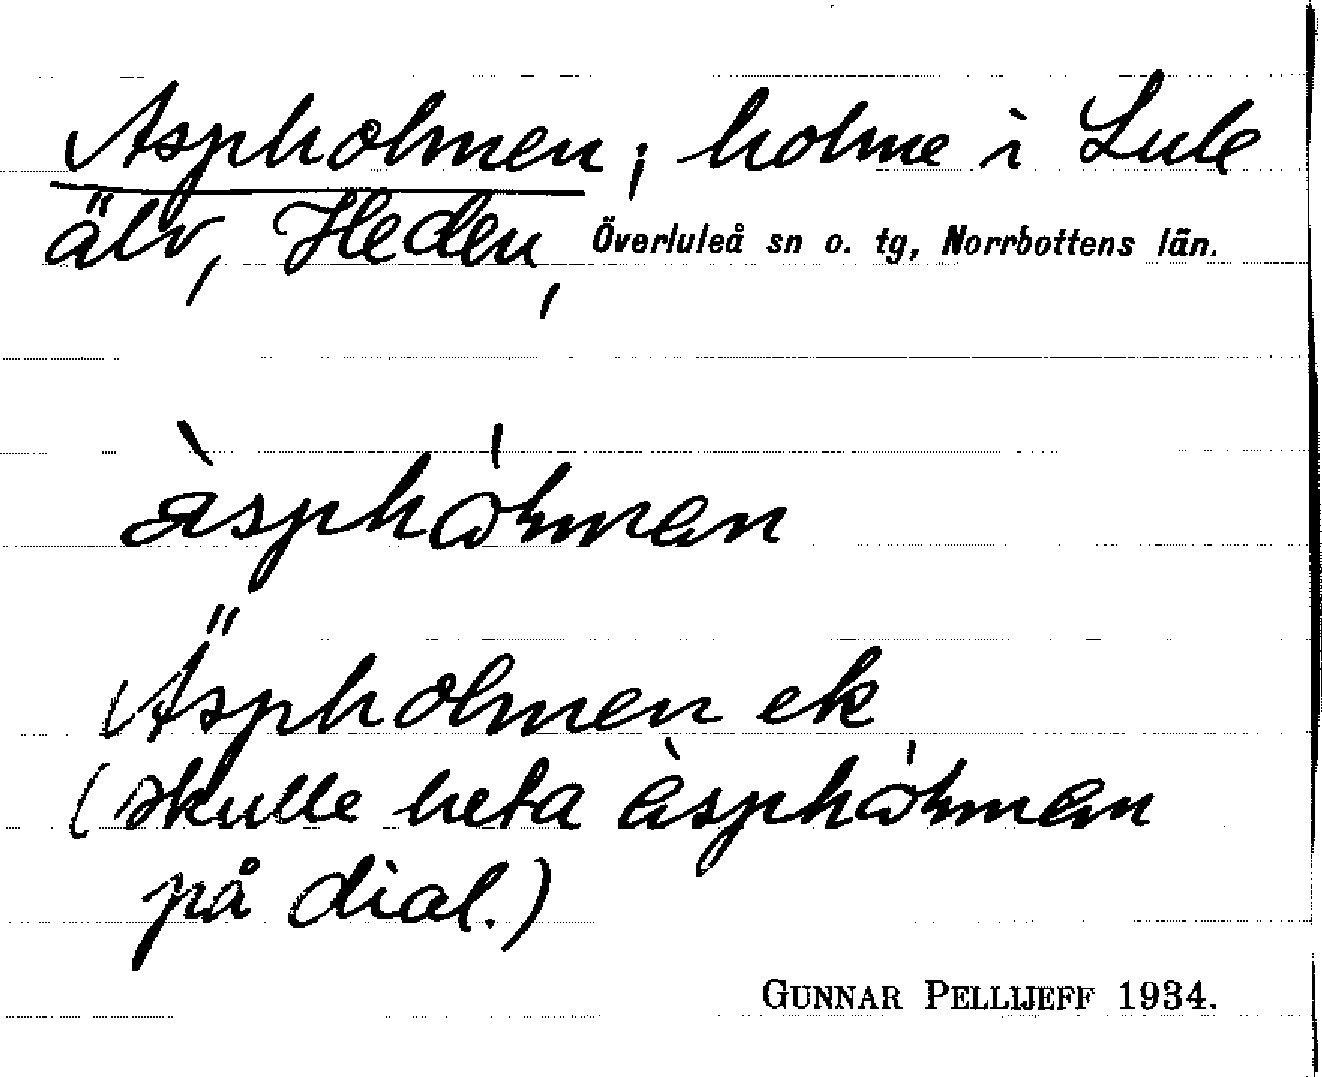 Aspholmen; holme i Lule
älv, Heden, Överluleå sn o. tg, Norrbottens län.
àsphóɫmen
Äspholmen ek
(skulle heta èsphóɫmen
på dial.)
GUNNAR PELLIJEFF 1934.